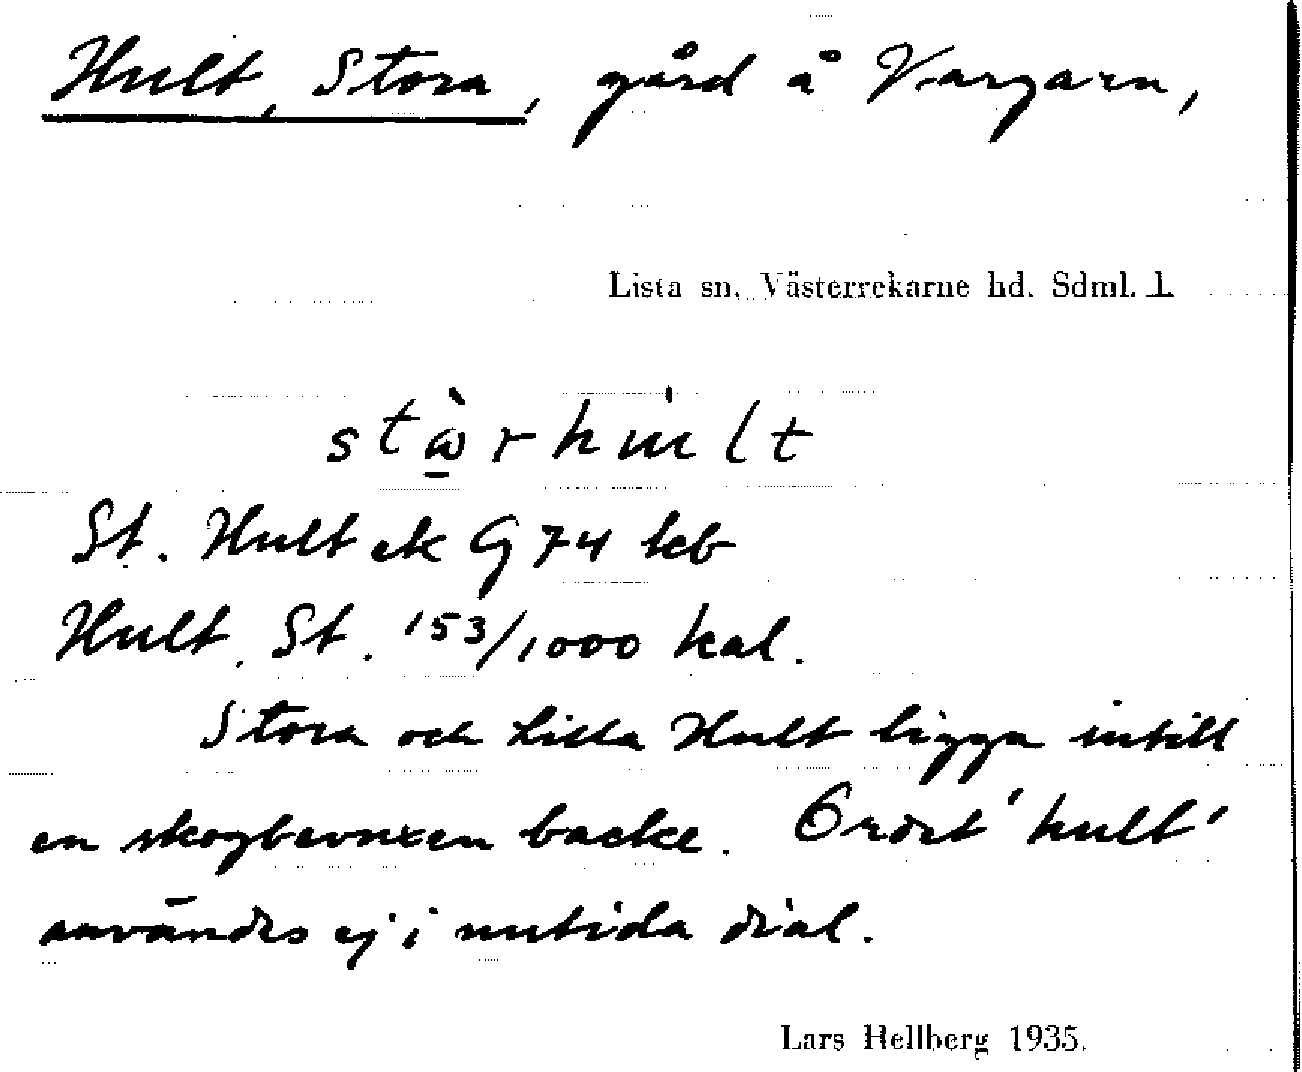 Hult, Stora, gård å Vargarn,
Lista sn. Västerrekarne hd. Sdml. l.
stὼ̲rhu̇lt
St. Hult ek G 74 kb
Hult, St. 153/1000 kal.
Stora och Lilla Hult ligga intill
en skogbevuxen backe. Ordet 'hult'
användes ej i nutida dial.
Lars Hellberg 1935.